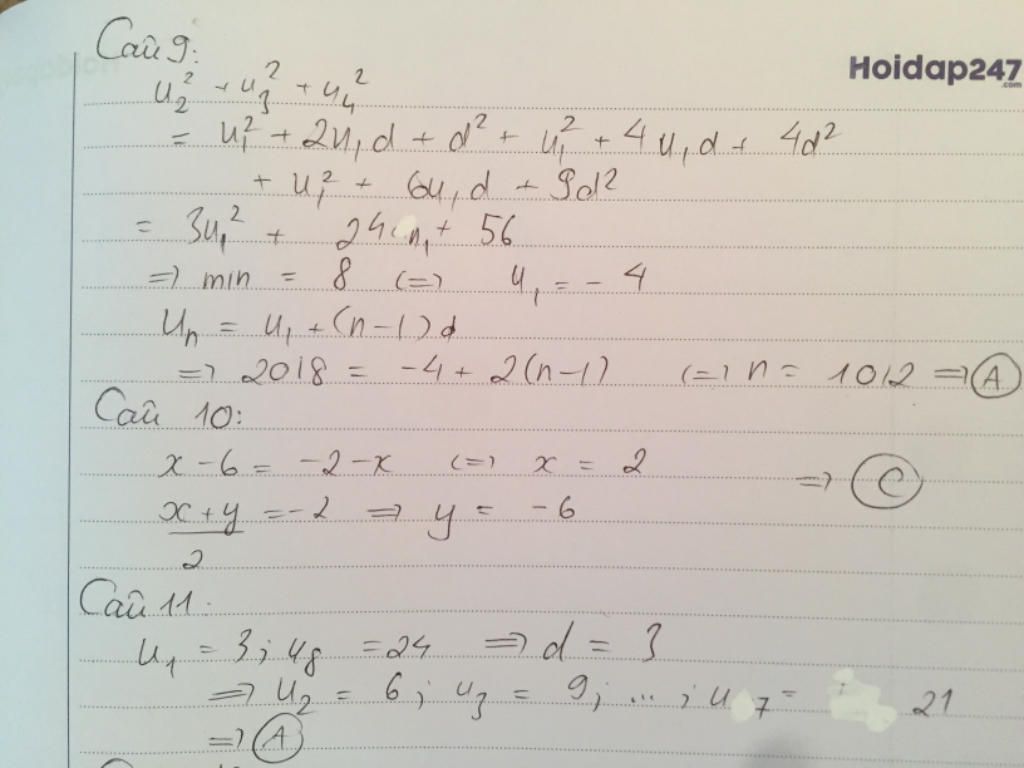 Câu 9:
Hoidap247
.com
u₂² + u₃² + u₄²
= u₁² + 2u₁d + d² + u₁² + 4u₁d + 4d²
+ u₁² + 6u₁d + 9d²
= 3u₁² + 24u₁ + 56
=> min = 8 <=> u₁ = -4
uₙ = u₁ + (n-1)d
=> 2018 = -4 + 2(n-1) <=> n = 1012 => A
Câu 10:
x - 6 = -2 - x <=> x = 2
=> C
(x + y)/2 = -2 => y = -6
Câu 11:
u₁ = 3; u₈ = 24 => d = 3
=> u₂ = 6; u₃ = 9; ...; u₇ = 21
=> A